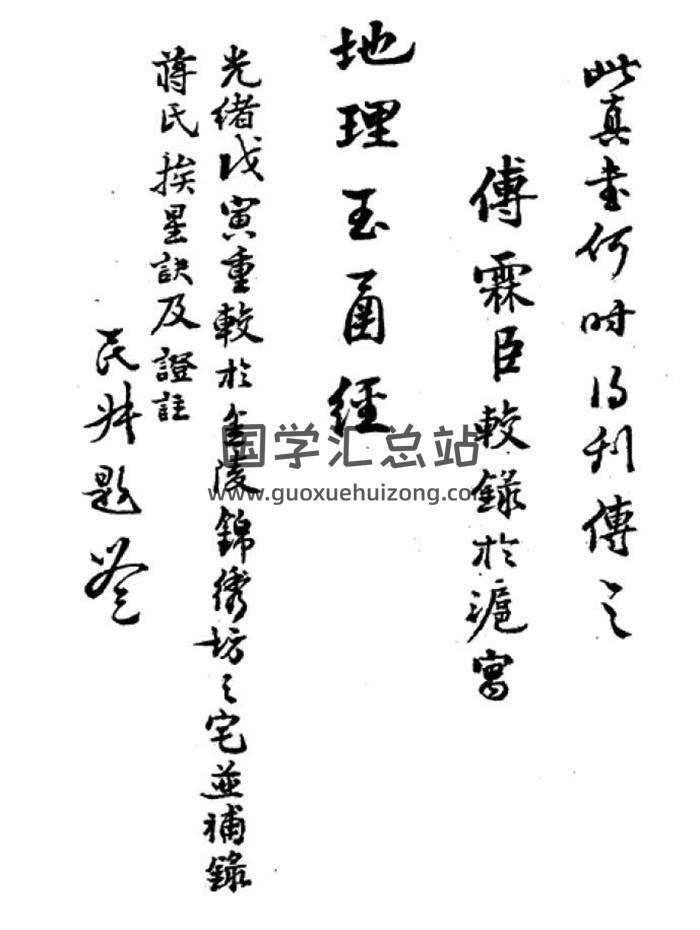 此真書何时得刊傳之
傅霖臣較錄於滬寓
地理玉函經
光緒戊寅重較於金陵錦綉坊之宅並補錄
蔣氏挨星訣及證註
民牀題簽
国学汇总站
www.guoxuehuizong.com